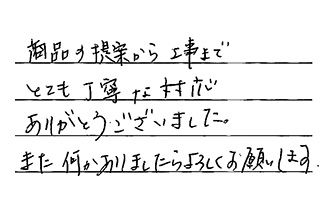 商品の提案から工事まで
とても丁寧な対応
ありがとうございました。
また何かありましたらよろしくお願いします。